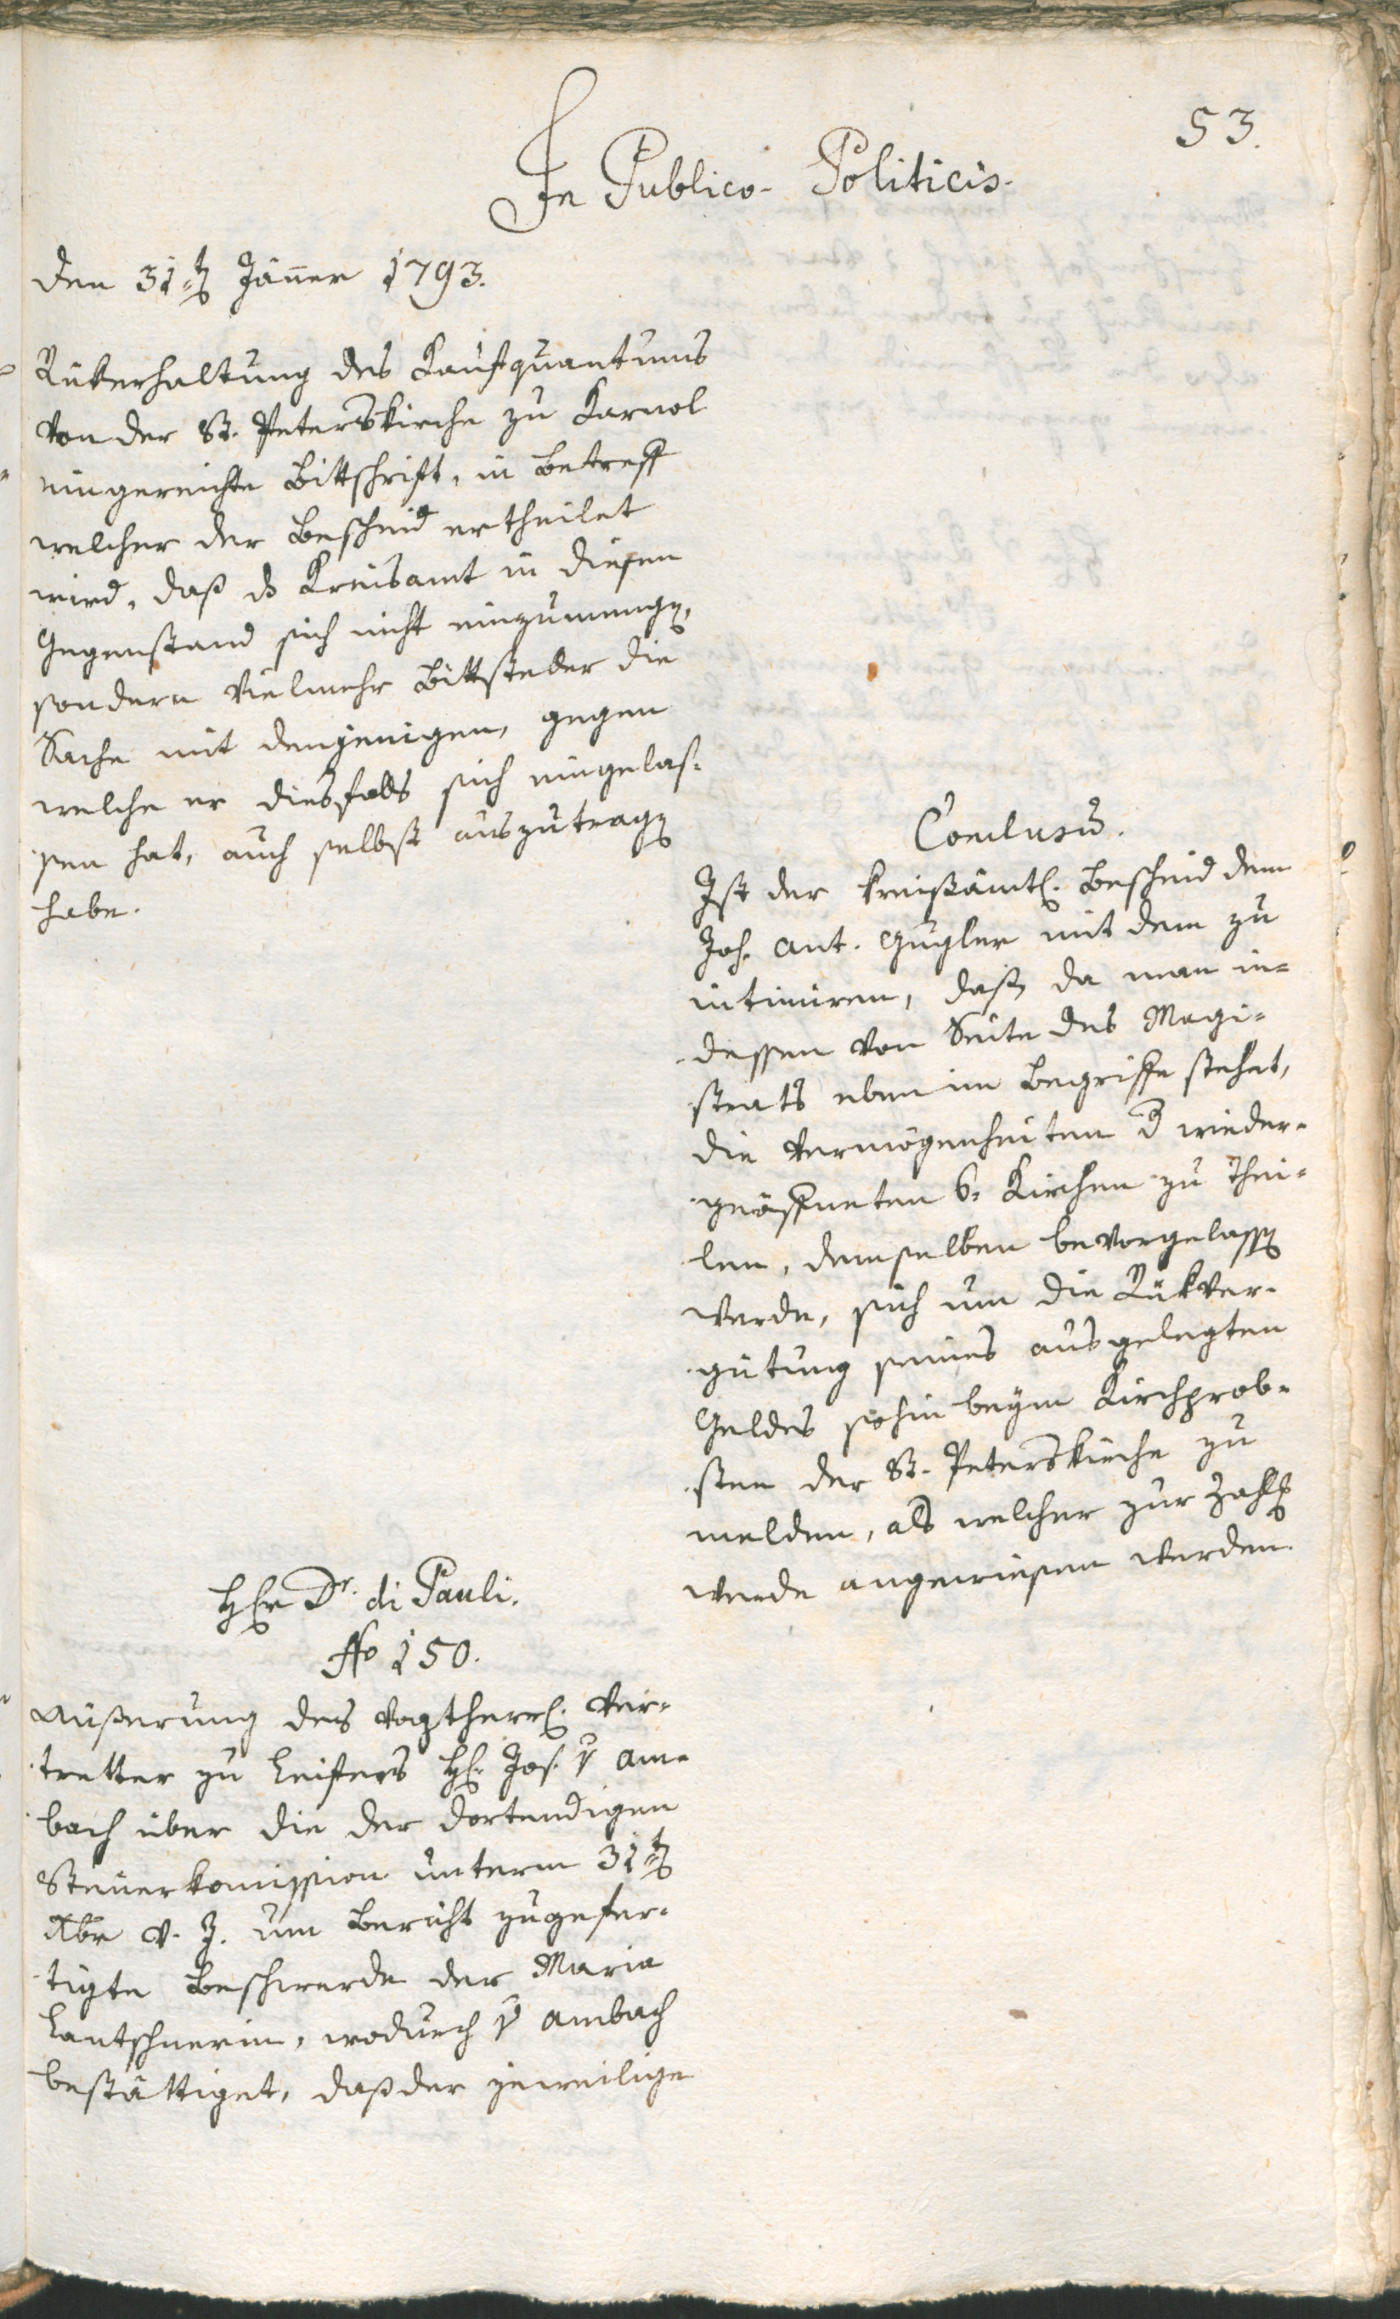 53.
In Publico-Politicis.
den 31.t Jänner 1793.
Rükerhaltung des Kaufquantums
von der St. Peterskirche zu Karnol
eingereichte Bittschrift, in Betreff
welcher der Bescheid ertheilet
wird, daß ds Kreisamt in diesen
Gegenstand sich nicht einzumeng,
sondern vielmehr Bittsteller die
Sache mit denjenigen, gegen
welche er diesfalls sich eingelas-
sen hat, auch selbst auszutrag
habe.
Conclusū.
Ist der kreisämtl. Bescheid dem
Joh. Ant. Gugler mit dem zu
intimiren, daß da man in-
dessen von Seite des Magi-
strats eben im Begriffe stehet,
die Vermögenheiten d wieder-
geöffneten 6. Kirchen zu thei-
len, demselben bevorgelass
werde, sich um die Rükver-
gütung seines ausgelegten
Geldes sohin beym Kirchprob-
sten der St. Peterskirche zu
melden, als welcher zur Zahlg
werde angewiesen werden.
Hhr Dr. di Pauli.
No 150.
Äußerung des vogtherrl. Ver-
tretter zu Leifers H. Jos. v Am-
bach über die der dortendigen
Steuerkomission unterm 31.t
Xbr v. J. um Bericht zugefer-
tigte Beschwerde der Maria
Lantschnerin, wodurch v Ambach
bestättiget, daß der jeweilige